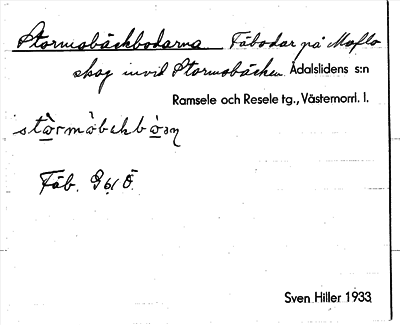 Stormobäckbodarna Fäbodar på Moflo
skog invid Stormobäcken Ådalslidens s:n
Ramsele och Resele tg., Västernorrl. l.
Fäb. 961 Ö.
Sven Hiller 1933